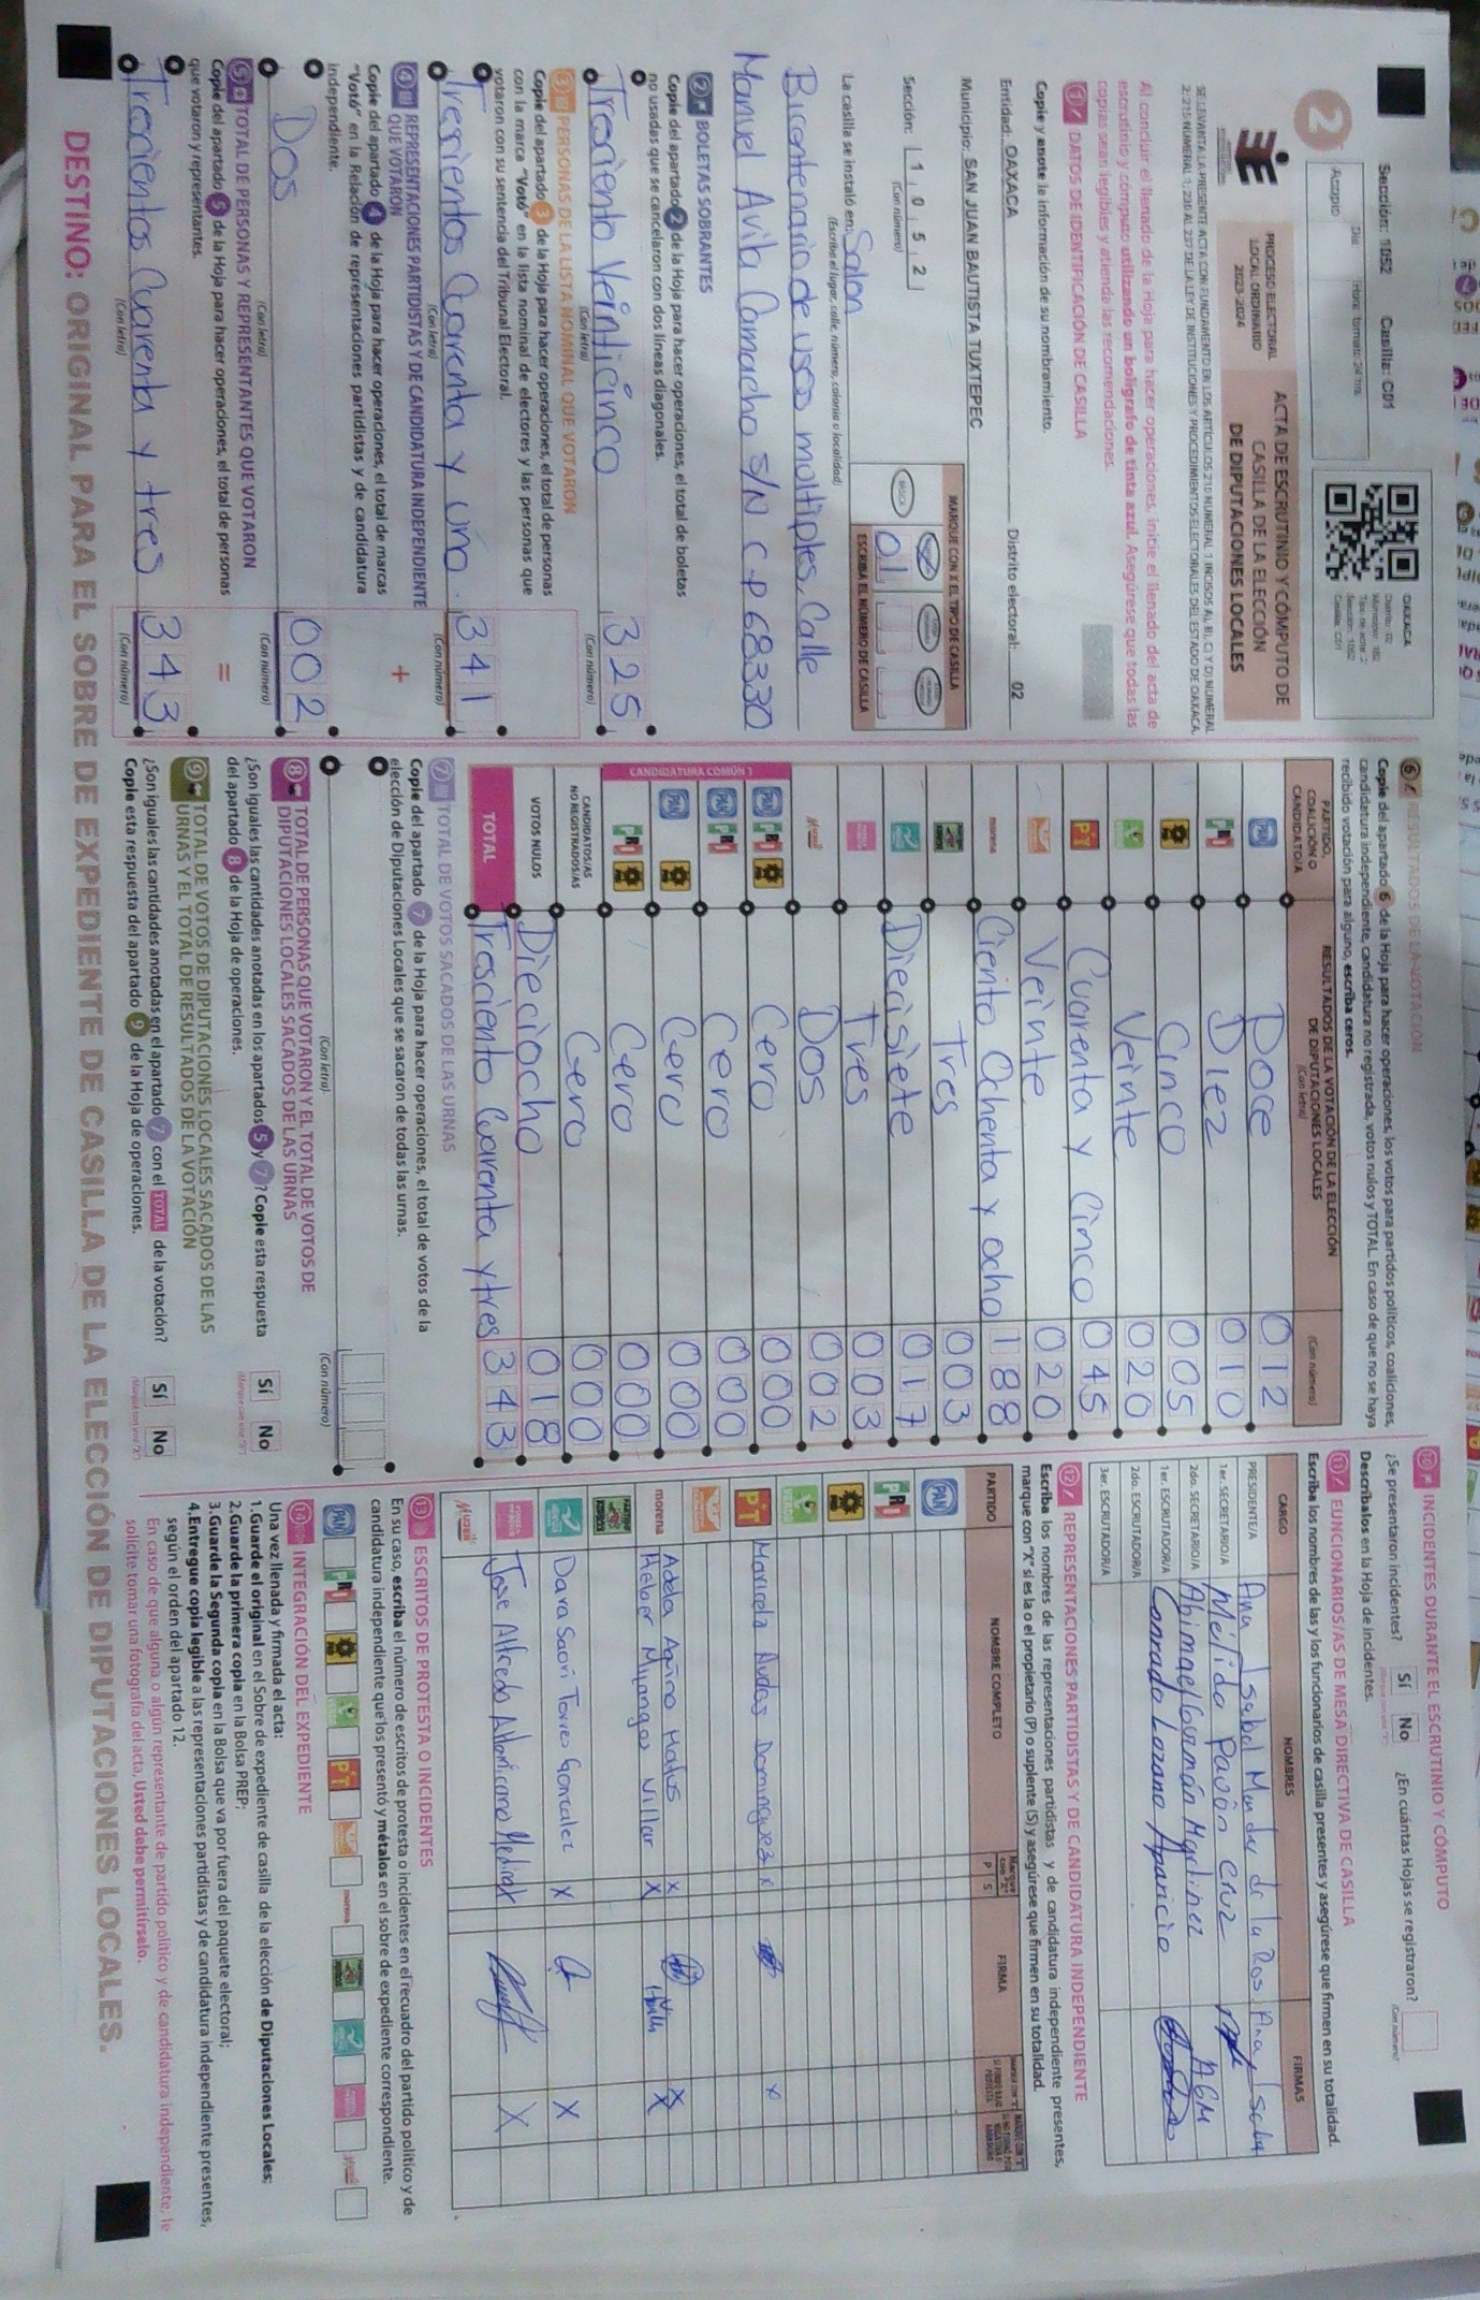 Sección: 1052 Casilla: C01
2
Acopio
Día: Hora: formato: 24 hrs
PROCESO ELECTORAL
LOCAL ORDINARIO
2023-2024
ACTA DE ESCRUTINIO Y CÓMPUTO DE
CASILLA DE LA ELECCIÓN
DE DIPUTACIONES LOCALES
OAXACA
Al concluir el llenado de la Hoja para hacer operaciones, inicie el llenado del acta de
escrutinio y cómputo utilizando un bolígrafo de tinta azul. Asegúrese que todas las
copias sean legibles y atienda las recomendaciones.
1 DATOS DE IDENTIFICACIÓN DE CASILLA
Copie y anote la información de su nombramiento.
Entidad: OAXACA Distrito electoral: 02
Municipio: SAN JUAN BAUTISTA TUXTEPEC
Sección: 1 0 5 2
(Con número)
MARQUE CON X EL TIPO DE CASILLA
ESCRIBA EL NÚMERO DE CASILLA
01
La casilla se instaló en: Salon
(Escriba el lugar, calle, número, colonia o localidad)
Bicentenario de usos multiples, Calle
Manuel Avila Camacho S/N C.P 68330
2 BOLETAS SOBRANTES
Copie del apartado 2 de la Hoja para hacer operaciones, el total de boletas
no usadas que se cancelaron con dos líneas diagonales.
Tresciento Veinticinco 325
(Con letra) (Con número)
3 PERSONAS DE LA LISTA NOMINAL QUE VOTARON
Copie del apartado 3 de la Hoja para hacer operaciones, el total de personas
con la marca "Votó" en la lista nominal de electores y las personas que
votaron con su sentencia del Tribunal Electoral.
Trescientos Cuarenta y uno. 341
(Con letra) (Con número)
4 REPRESENTACIONES PARTIDISTAS Y DE CANDIDATURA INDEPENDIENTE
QUE VOTARON +
Copie del apartado 4 de la Hoja para hacer operaciones, el total de marcas
"Votó" en la Relación de representaciones partidistas y de candidatura
independiente.
Dos 002
(Con letra) (Con número)
5 TOTAL DE PERSONAS Y REPRESENTANTES QUE VOTARON
Copie del apartado 5 de la Hoja para hacer operaciones, el total de personas =
que votaron y representantes.
Trecientos Cuarenta y tres 343
(Con letra) (Con número)
6 RESULTADOS DE LA VOTACIÓN
Copie del apartado 6 de la Hoja para hacer operaciones, los votos para partidos políticos, coaliciones,
candidatura independiente, candidatura no registrada, votos nulos y TOTAL. En caso de que no se haya
recibido votación para alguno, escriba ceros.
PARTIDO, COALICIÓN O CANDIDATO/A
RESULTADOS DE LA VOTACIÓN DE LA ELECCIÓN
DE DIPUTACIONES LOCALES
(Con letra) (Con número)
PAN Doce 012
PRI Diez 010
PRD Cinco 005
VERDE Veinte 020
PT Cuarenta y Cinco 045
Veinte 020
morena Ciento Ochenta y ocho 188
Tres 003
Diecisiete 017
Tres 003
Mujer Dos 002
CANDIDATURA COMÚN 1
PAN PRI PRD Cero 000
PAN PRI Cero 000
PAN PRD Cero 000
PRI PRD Cero 000
CANDIDATOS/AS
NO REGISTRADOS/AS Cero 000
VOTOS NULOS Dieciocho 018
TOTAL Tresciento Cuarenta y tres 343
7 TOTAL DE VOTOS SACADOS DE LAS URNAS
Copie del apartado 7 de la Hoja para hacer operaciones, el total de votos de la
elección de Diputaciones Locales que se sacaron de todas las urnas.
(Con letra) (Con número)
8 TOTAL DE PERSONAS QUE VOTARON Y EL TOTAL DE VOTOS DE
DIPUTACIONES LOCALES SACADOS DE LAS URNAS
¿Son iguales las cantidades anotadas en los apartados 5 y 7? Copie esta respuesta
del apartado 8 de la Hoja de operaciones. Sí No
9 TOTAL DE VOTOS DE DIPUTACIONES LOCALES SACADOS DE LAS
URNAS Y EL TOTAL DE RESULTADOS DE LA VOTACIÓN
¿Son iguales las cantidades anotadas en el apartado 7 con el TOTAL de la votación?
Copie esta respuesta del apartado 9 de la Hoja de operaciones. Sí No
10 INCIDENTES DURANTE EL ESCRUTINIO Y CÓMPUTO
¿Se presentaron incidentes? Sí No ¿En cuántas Hojas se registraron?
Descríbalos en la Hoja de incidentes.
11 FUNCIONARIOS/AS DE MESA DIRECTIVA DE CASILLA
Escriba los nombres de las y los funcionarios de casilla presentes y asegúrese que firmen en su totalidad.
CARGO NOMBRES FIRMAS
PRESIDENTE/A Ana Isabel Mendez de la Rosa
1er. SECRETARIO/A Mélida Pavón Cruz
2do. SECRETARIO/A Abimael Guzmán Martinez AGM
1er. ESCRUTADOR/A Conrado Lozano Aparicio
2do. ESCRUTADOR/A
3er. ESCRUTADOR/A
12 REPRESENTACIONES PARTIDISTAS Y DE CANDIDATURA INDEPENDIENTE
Escriba los nombres de las representaciones partidistas y de candidatura independiente presentes,
marque con "X" si es la o el propietario (P) o suplente (S) y asegúrese que firmen en su totalidad.
PARTIDO NOMBRE COMPLETO P S FIRMA
PAN
PRI
PRD
VERDE
PT Maricela Dominguez X X
morena Adela Aquino Matus X X
Heber Mijangos Villar X X
Dara Saori Torres Gonzalez X X
Jose Alfredo X X
Mujer
13 ESCRITOS DE PROTESTA O INCIDENTES
En su caso, escriba el número de escritos de protesta o incidentes en el recuadro del partido político y de
candidatura independiente que los presentó y métalos en el sobre de expediente correspondiente.
PAN PRI PRD VERDE PT morena
14 INTEGRACIÓN DEL EXPEDIENTE
Una vez llenada y firmada el acta:
1.Guarde el original en el Sobre de expediente de casilla de la elección de Diputaciones Locales;
2.Guarde la primera copia en la Bolsa PREP;
3.Guarde la Segunda copia en la Bolsa que va por fuera del paquete electoral;
4.Entregue copia legible a las representaciones partidistas y de candidatura independiente presentes,
según el orden del apartado 12.
En caso de que alguna o algún representante de partido político y de candidatura independiente, le
solicite tomar una fotografía del acta, Usted debe permitírselo.
DESTINO: ORIGINAL PARA EL SOBRE DE EXPEDIENTE DE CASILLA DE LA ELECCIÓN DE DIPUTACIONES LOCALES.